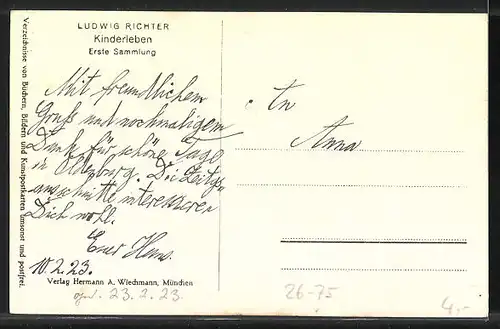 LUDWIG RICHTER
Kinderleben
Erste Sammlung
Mit freundlichem
Gruß und nochmaligem
Dank für schöne Tage
in Oldenburg. Die Zeitgs-
ausschnitte interessieren
Dich wohl.
Euer Hans.
10.2.23.
Verlag Hermann A. Wiechmann, München
23.2.23.
Verzeichnisse von Büchern, Bildern und Kunstpostkarten umsonst und postfrei.
Anna
26-75
4,-